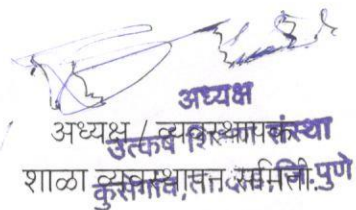 अध्यक्ष
अध्यक्ष / व्यवस्थापक
उत्कर्ष शिक्षण संस्था
शाळा व्यवस्थापन समिती
पुणे